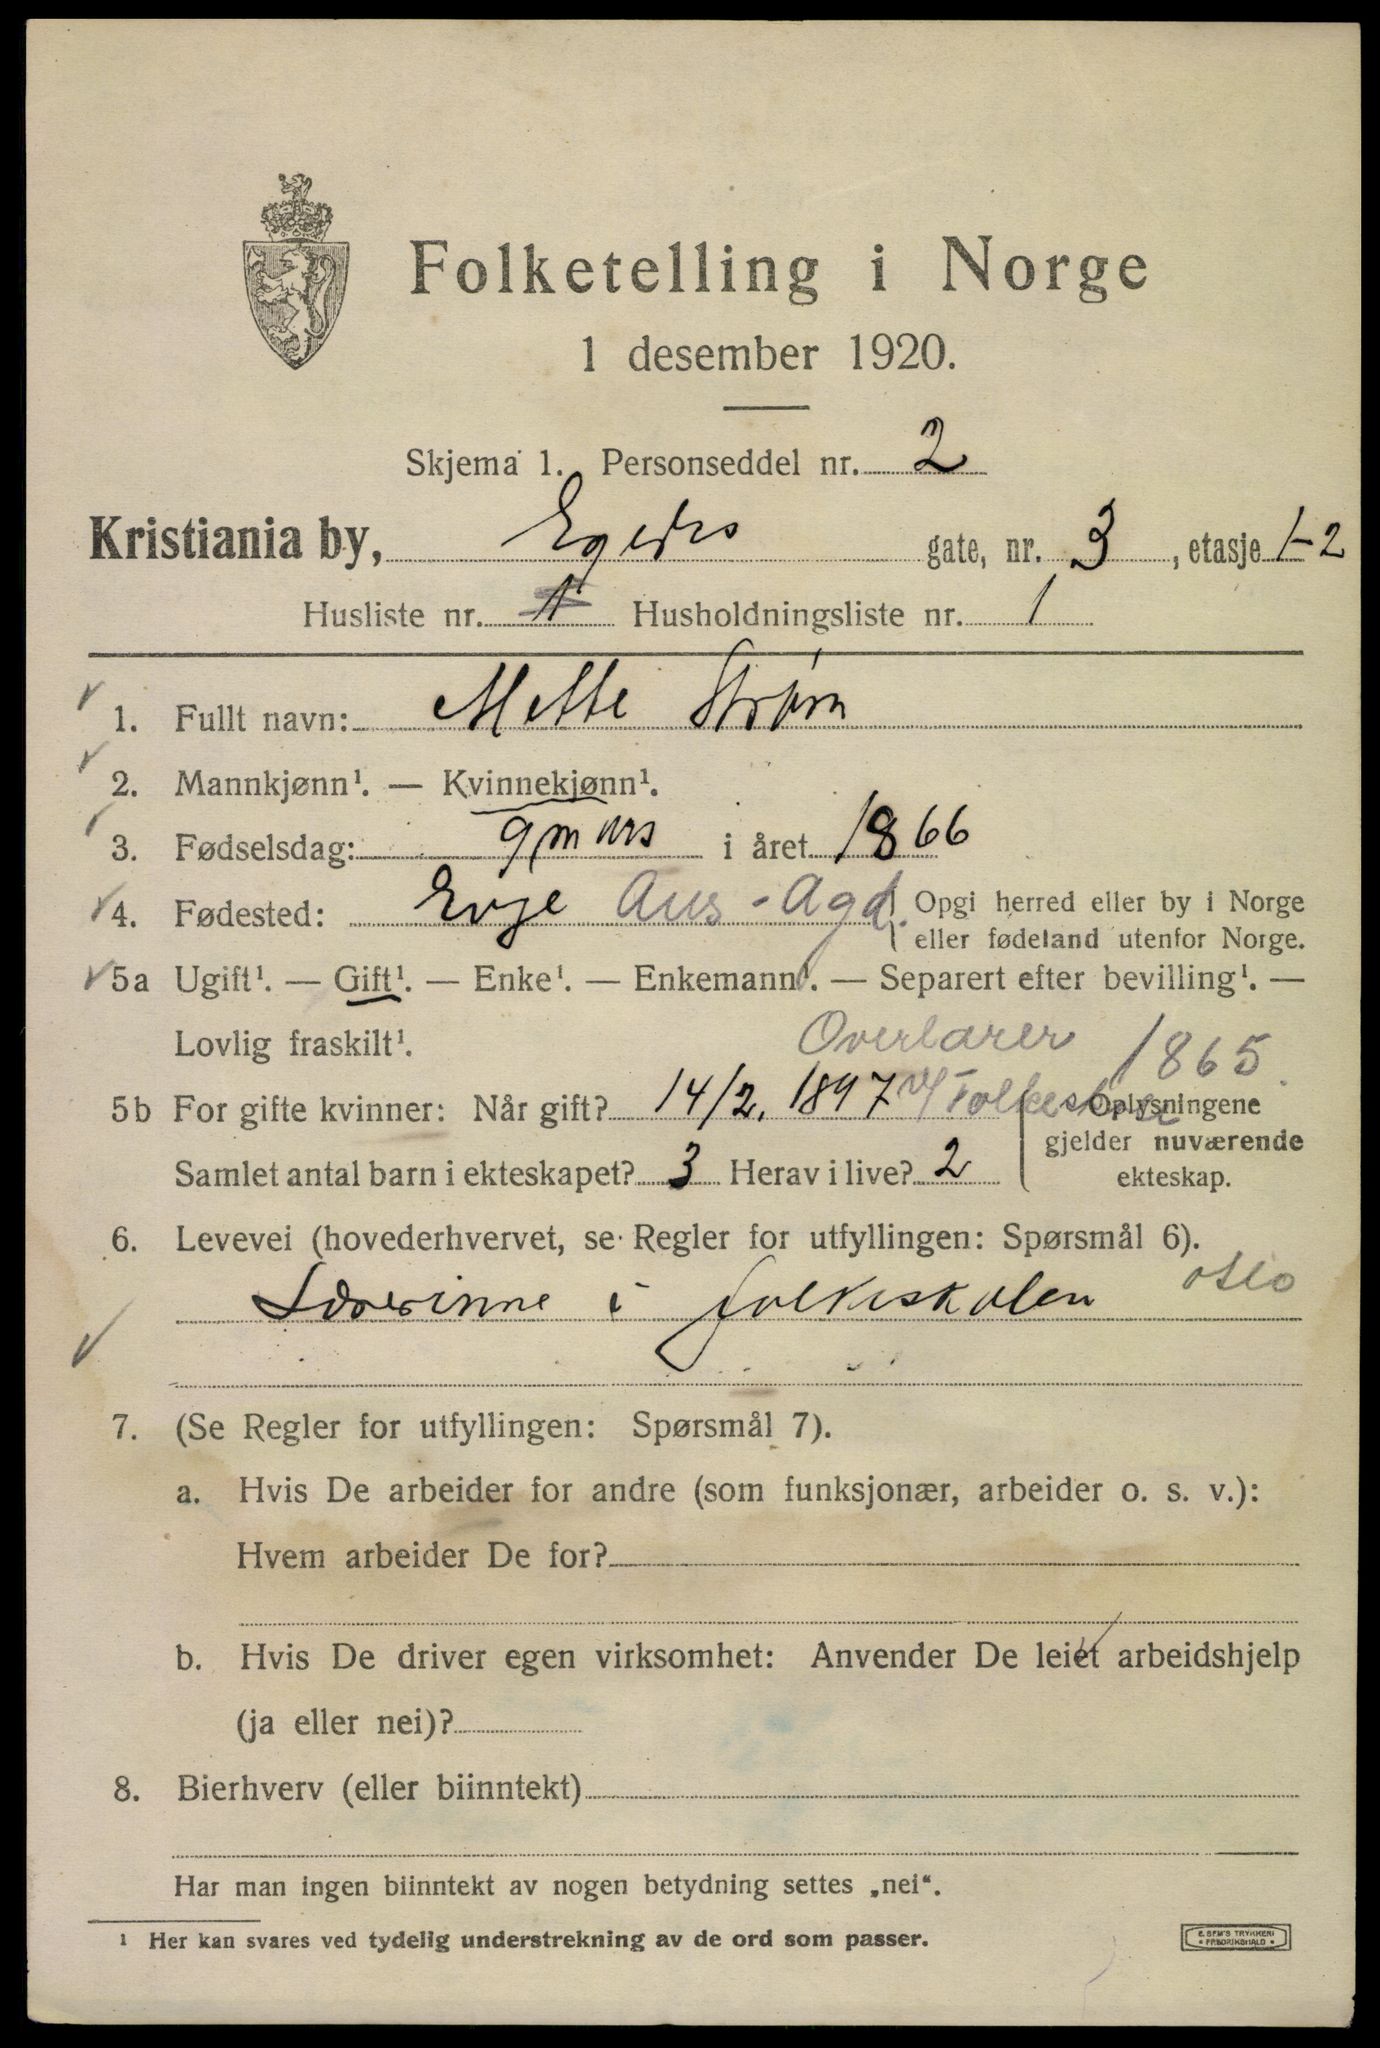 Folketelling i Norge
1 desember 1920.
Skjema 1. Personseddel nr. 2
Kristiania by, Egedes gate, nr. 3, etasje 1-2
Husliste nr. 1 Husholdningsliste nr. 1
1. Fullt navn: Mette Strøm
2. Mannkjønn¹. — Kvinnekjønn¹.
3. Fødselsdag: 9 mars i året 1866
4. Fødested: Evje Aus-Agd. Opgi herred eller by i Norge
eller fødeland utenfor Norge.
5a Ugift¹. — Gift¹. — Enke¹. — Enkemann¹. — Separert efter bevilling¹. —
Lovlig fraskilt¹.
Overlærer 1865.
5b For gifte kvinner: Når gift? 14/2. 1897 v/ Folkeskole Oplysningene
gjelder nuværende
Samlet antal barn i ekteskapet? 3 Herav i live? 2 ekteskap.
6. Levevei (hovederhvervet, se Regler for utfyllingen: Spørsmål 6).
Lærerinne i folkeskolen Oslo
7. (Se Regler for utfyllingen: Spørsmål 7).
a. Hvis De arbeider for andre (som funksjonær, arbeider o. s. v.):
Hvem arbeider De for?
b. Hvis De driver egen virksomhet: Anvender De leiet arbeidshjelp
(ja eller nei)?
8. Bierhverv (eller biinntekt)
Har man ingen biinntekt av nogen betydning settes „nei“.
¹ Her kan svares ved tydelig understrekning av de ord som passer.
E. SEM'S TRYKKERI
FREDRIKSHALD